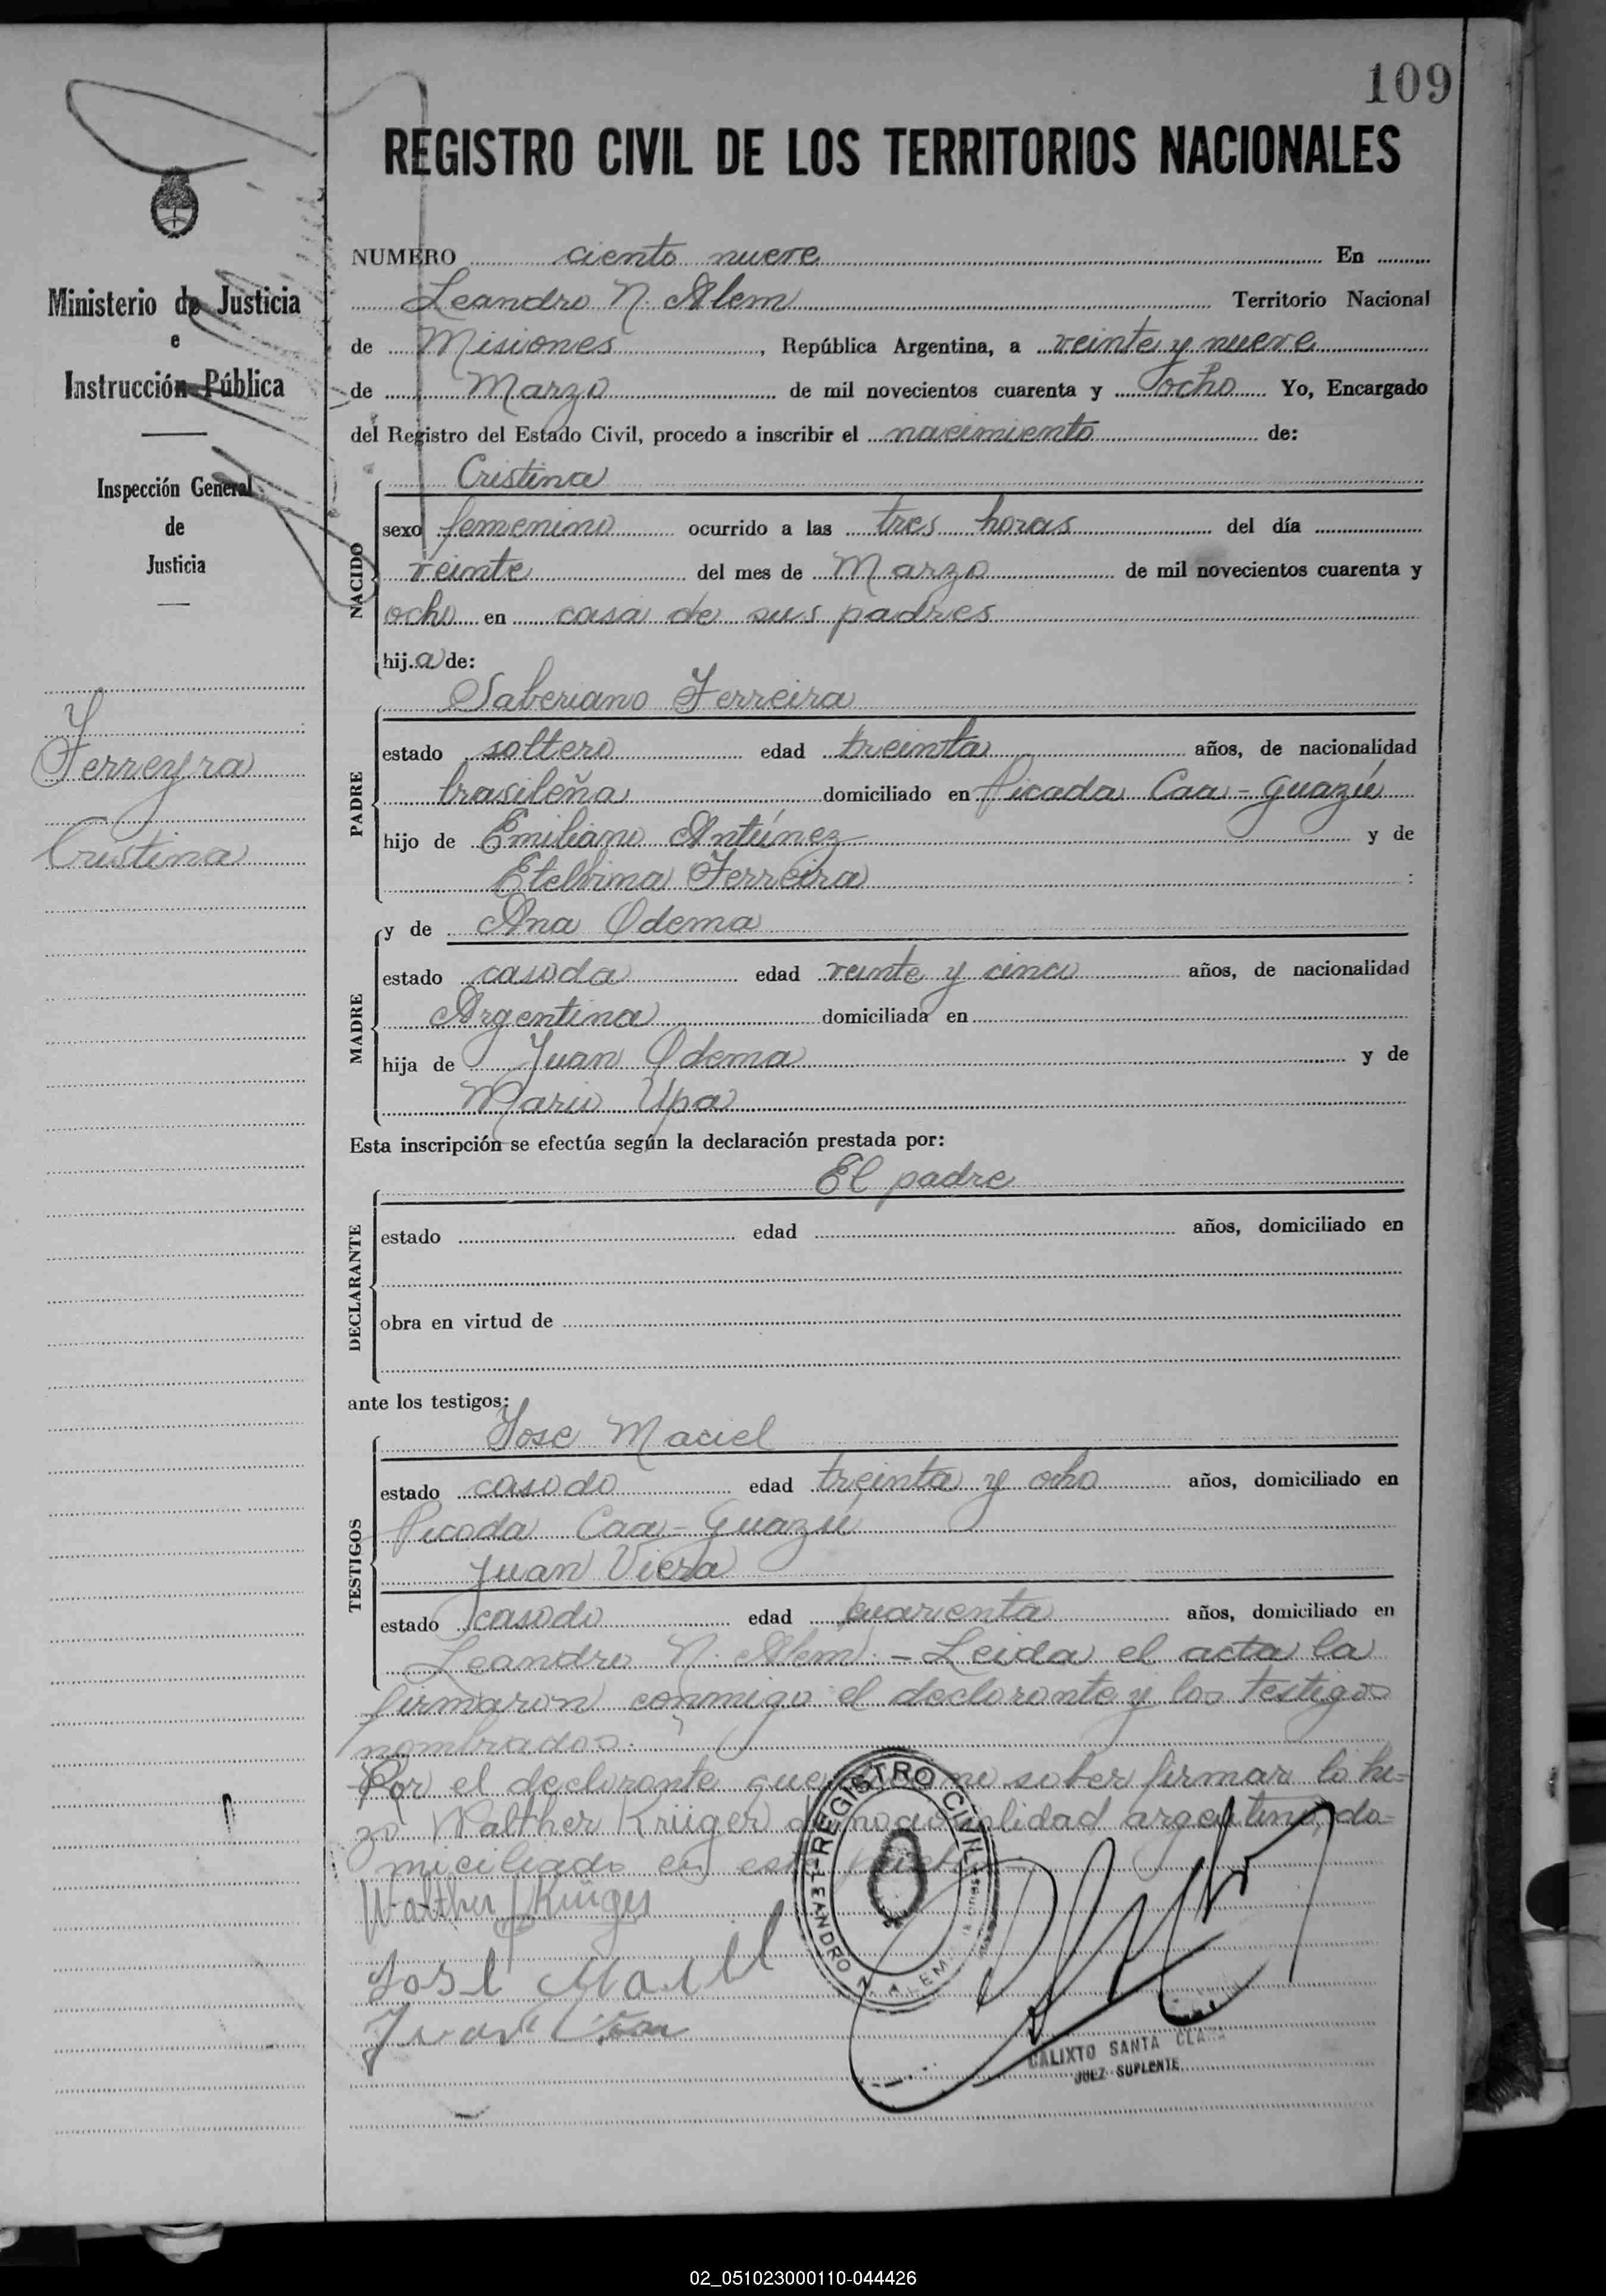 109
REGISTRO CIVIL DE LOS TERRITORIOS NACIONALES
Ministerio de Justicia
e
Instrucción Pública
Inspección General
de
Justicia
Ferreyra
Cristina
NUMERO ciento nueve En
Leandro N. Alem Territorio Nacional
de Misiones, República Argentina, a veinte y nueve
de Marzo de mil novecientos cuarenta y ocho Yo, Encargado
del Registro del Estado Civil, procedo a inscribir el nacimiento de:
NACIDO
Cristina
sexo femenino ocurrido a las tres horas del día
veinte del mes de Marzo de mil novecientos cuarenta y
ocho en casa de sus padres
hija de:
PADRE
Saberiano Ferreira
estado soltero edad treinta años, de nacionalidad
brasileña domiciliado en Picada Caa-Guazú
hijo de Emiliano Antúnez y de
Etelvina Ferreira :
MADRE
y de Ana Odema
estado casada edad veinte y cinco años, de nacionalidad
Argentina domiciliada en
hija de Juan Odema y de
Maria Upa
Esta inscripción se efectúa según la declaración prestada por:
DECLARANTE
El padre
estado edad años, domiciliado en
obra en virtud de
ante los testigos:
TESTIGOS
Jose Maciel
estado casado edad treinta y ocho años, domiciliado en
Picada Caa-Guazú
Juan Viera
estado casado edad cuarenta años, domiciliado en
Leandro N. Alem. - Leida el acta la
firmaron conmigo el declarante y los testigos
nombrados.
Por el declarante que no saber firmar lo hi-
zo Walther Krüger de nacionalidad argentino, do-
miciliado en este
Walther Krüger
José Maciel
Juan Viera
REGISTRO CIVIL
LEANDRO N. ALEM
CALIXTO SANTA CLARA
JUEZ SUPLENTE
02_051023000110-044426